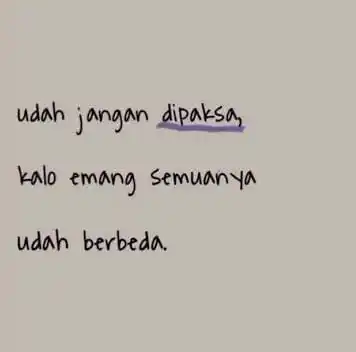 udah jangan dipaksa,
kalo emang semuanya
udah berbeda.